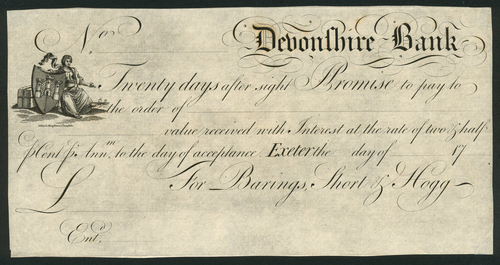 No
Devonshire Bank
Twenty days after sight Promise to pay to
the order of
value received with Interest at the rate of two & half
P Cent P Annm. to the day of acceptance. Exeter the day of 17
£ For Barings, Short & Hogg
Entd.